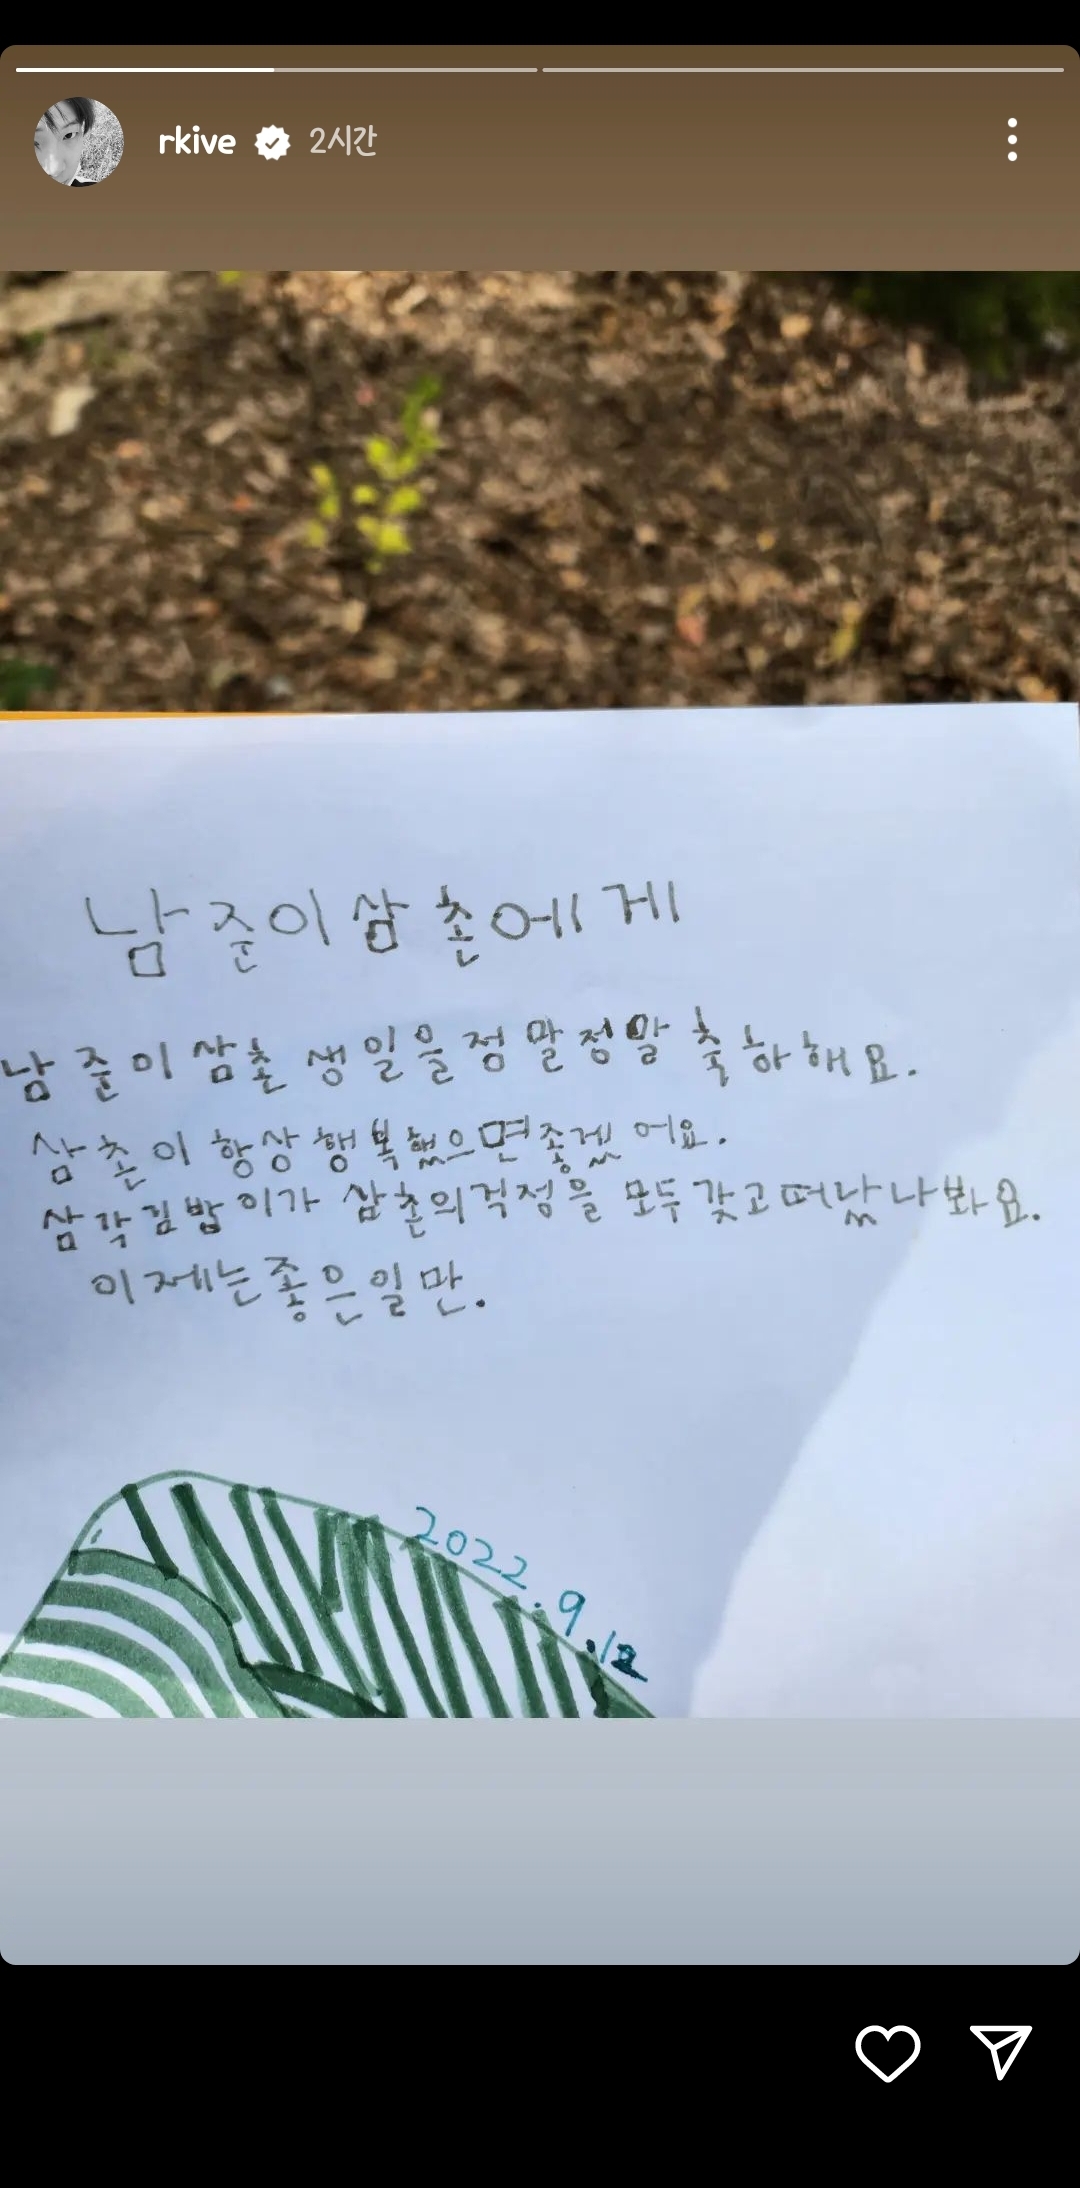 rkive 2시간
남준이삼촌에게
남준이삼촌 생일을정말정말 축하해요.
삼촌이 항상 행복했으면좋겠어요.
삼각김밥이가 삼촌의걱정을 모두갖고떠났나봐요.
이제는좋은일만.
2022.9.12